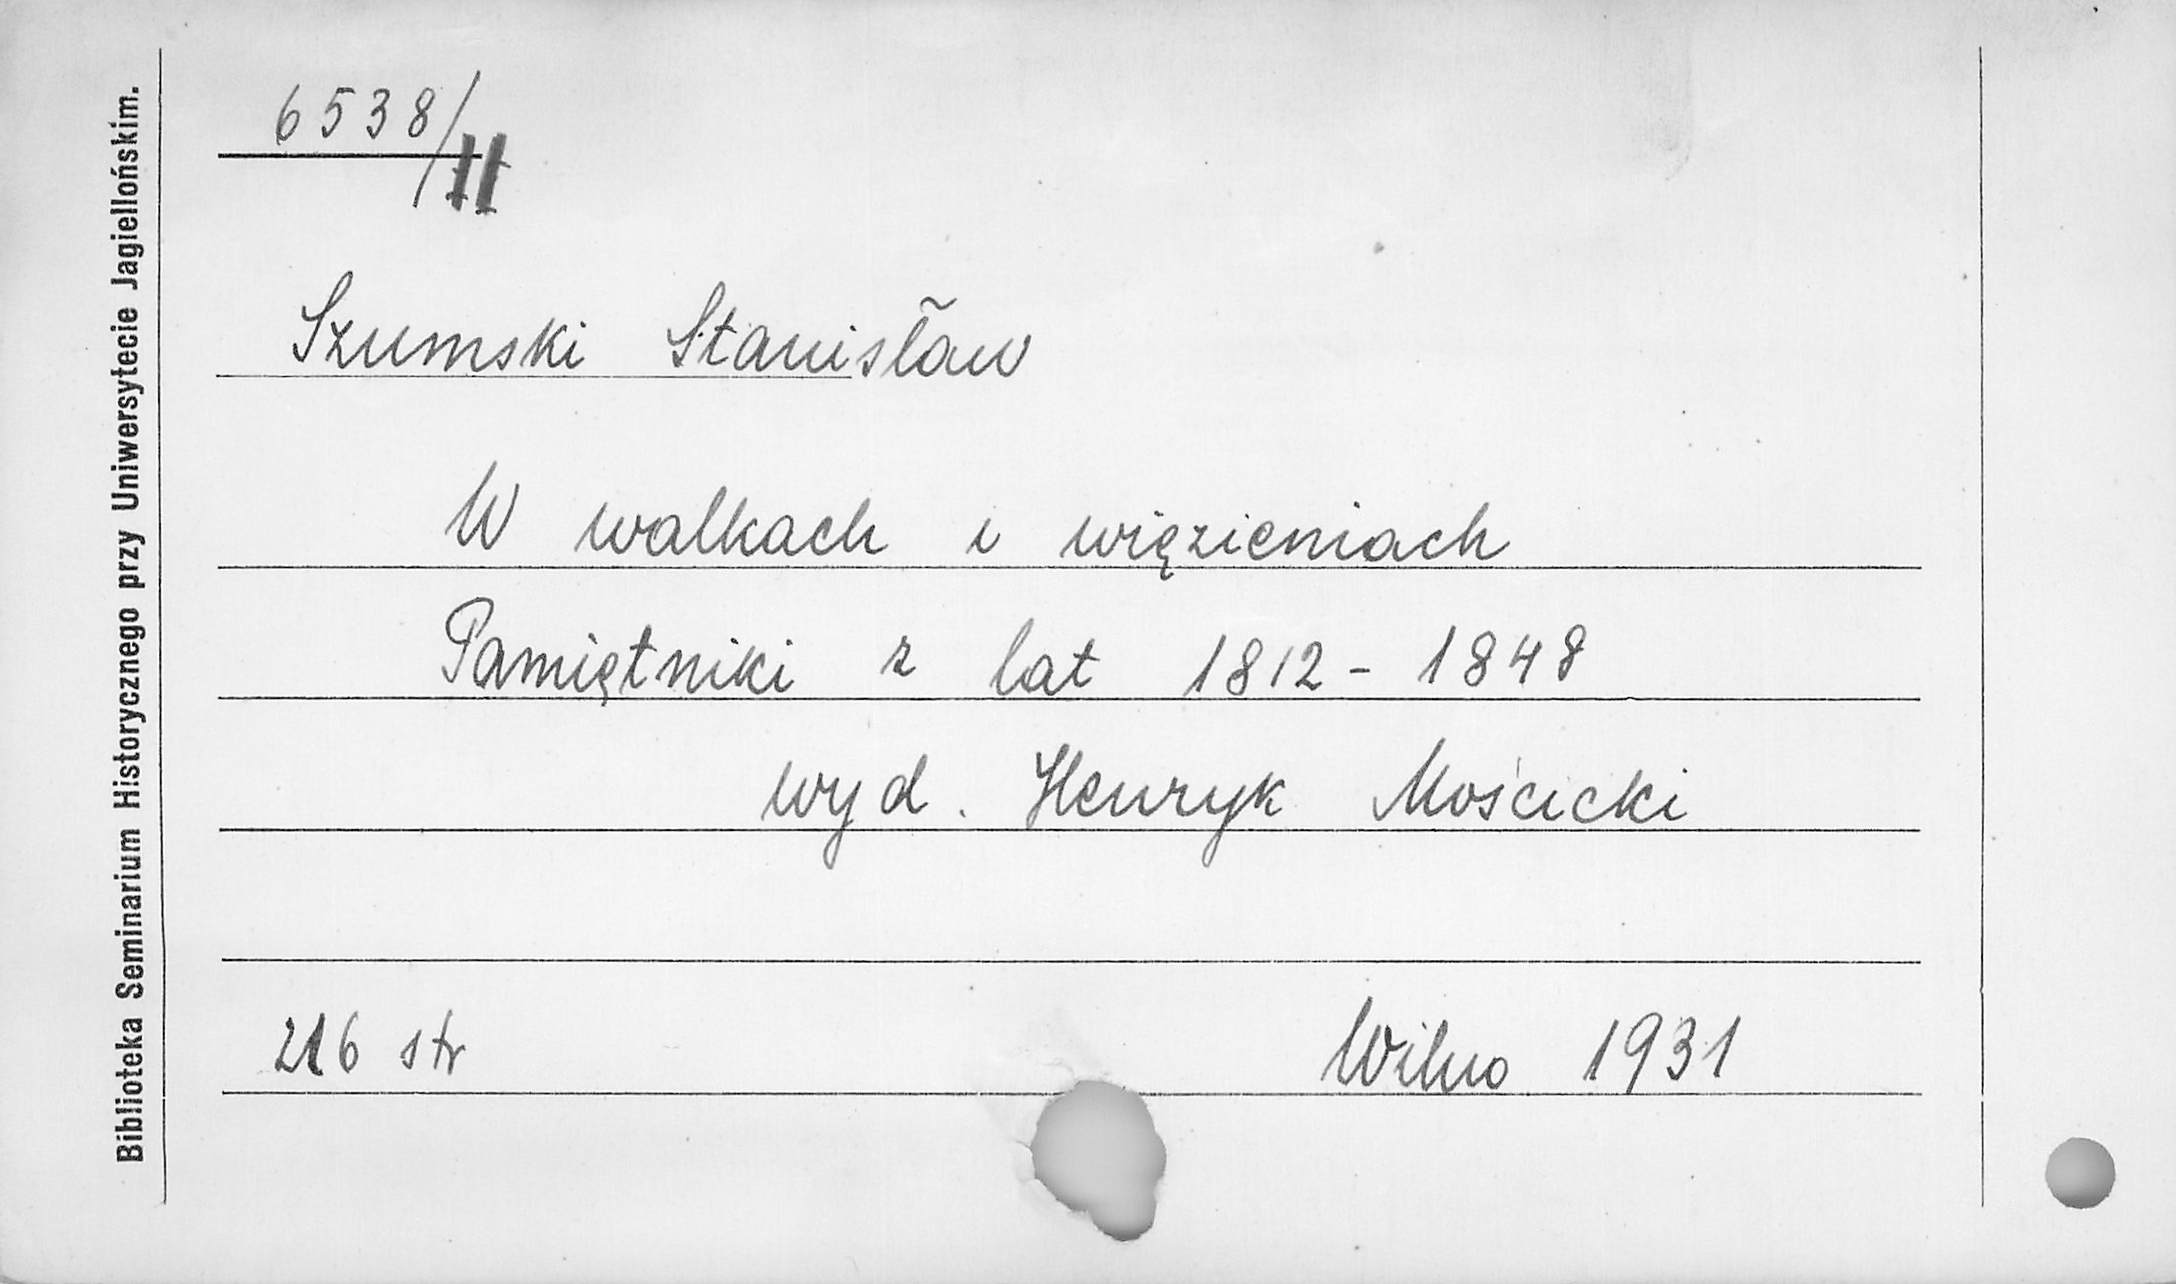 Biblioteka Seminarium Historycznego przy Uniwersytecie Jagiellońskim.
6538/II
Szumski Stanisław
W walkach i więzieniach
Pamiętniki z lat 1812 - 1848
wyd. Henryk Mościcki
216 str Wilno 1931